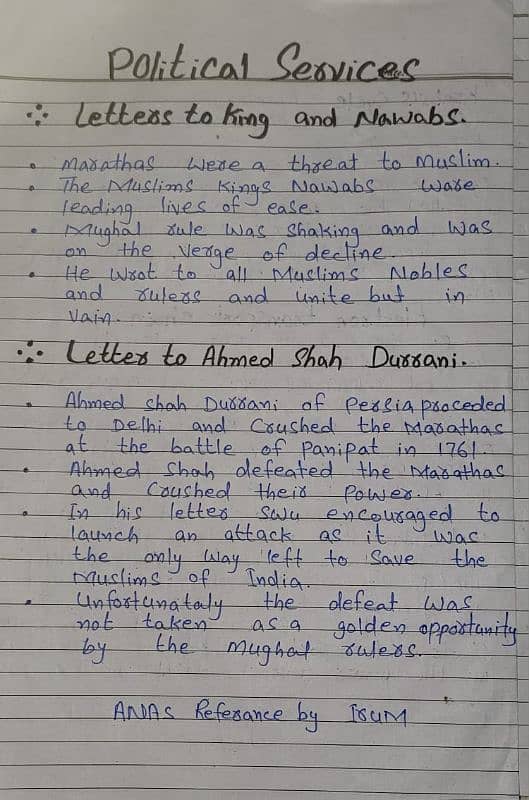 Political Services
Letters to King and Nawabs.
• Marathas were a threat to Muslim.
• The Muslims Kings Nawabs ware
leading lives of ease.
• Mughal rule was shaking and was
on the verge of decline.
• He wrot to all Muslims Nobles
and rulers and unite but in
vain.
Letter to Ahmed Shah Durrani.
• Ahmed shah Durrani of Persia proceded
to Delhi and Crushed the Marathas
at the battle of Panipat in 1761.
• Ahmed Shah defeated the Marathas
and Crushed their Power.
• In his letter SWU encouraged to
launch an attack as it was
the only way left to save the
Muslims of India.
• Unfortunataly the defeat was
not taken as a golden opportunity
by the Mughal rulers.
ANAS Referance by